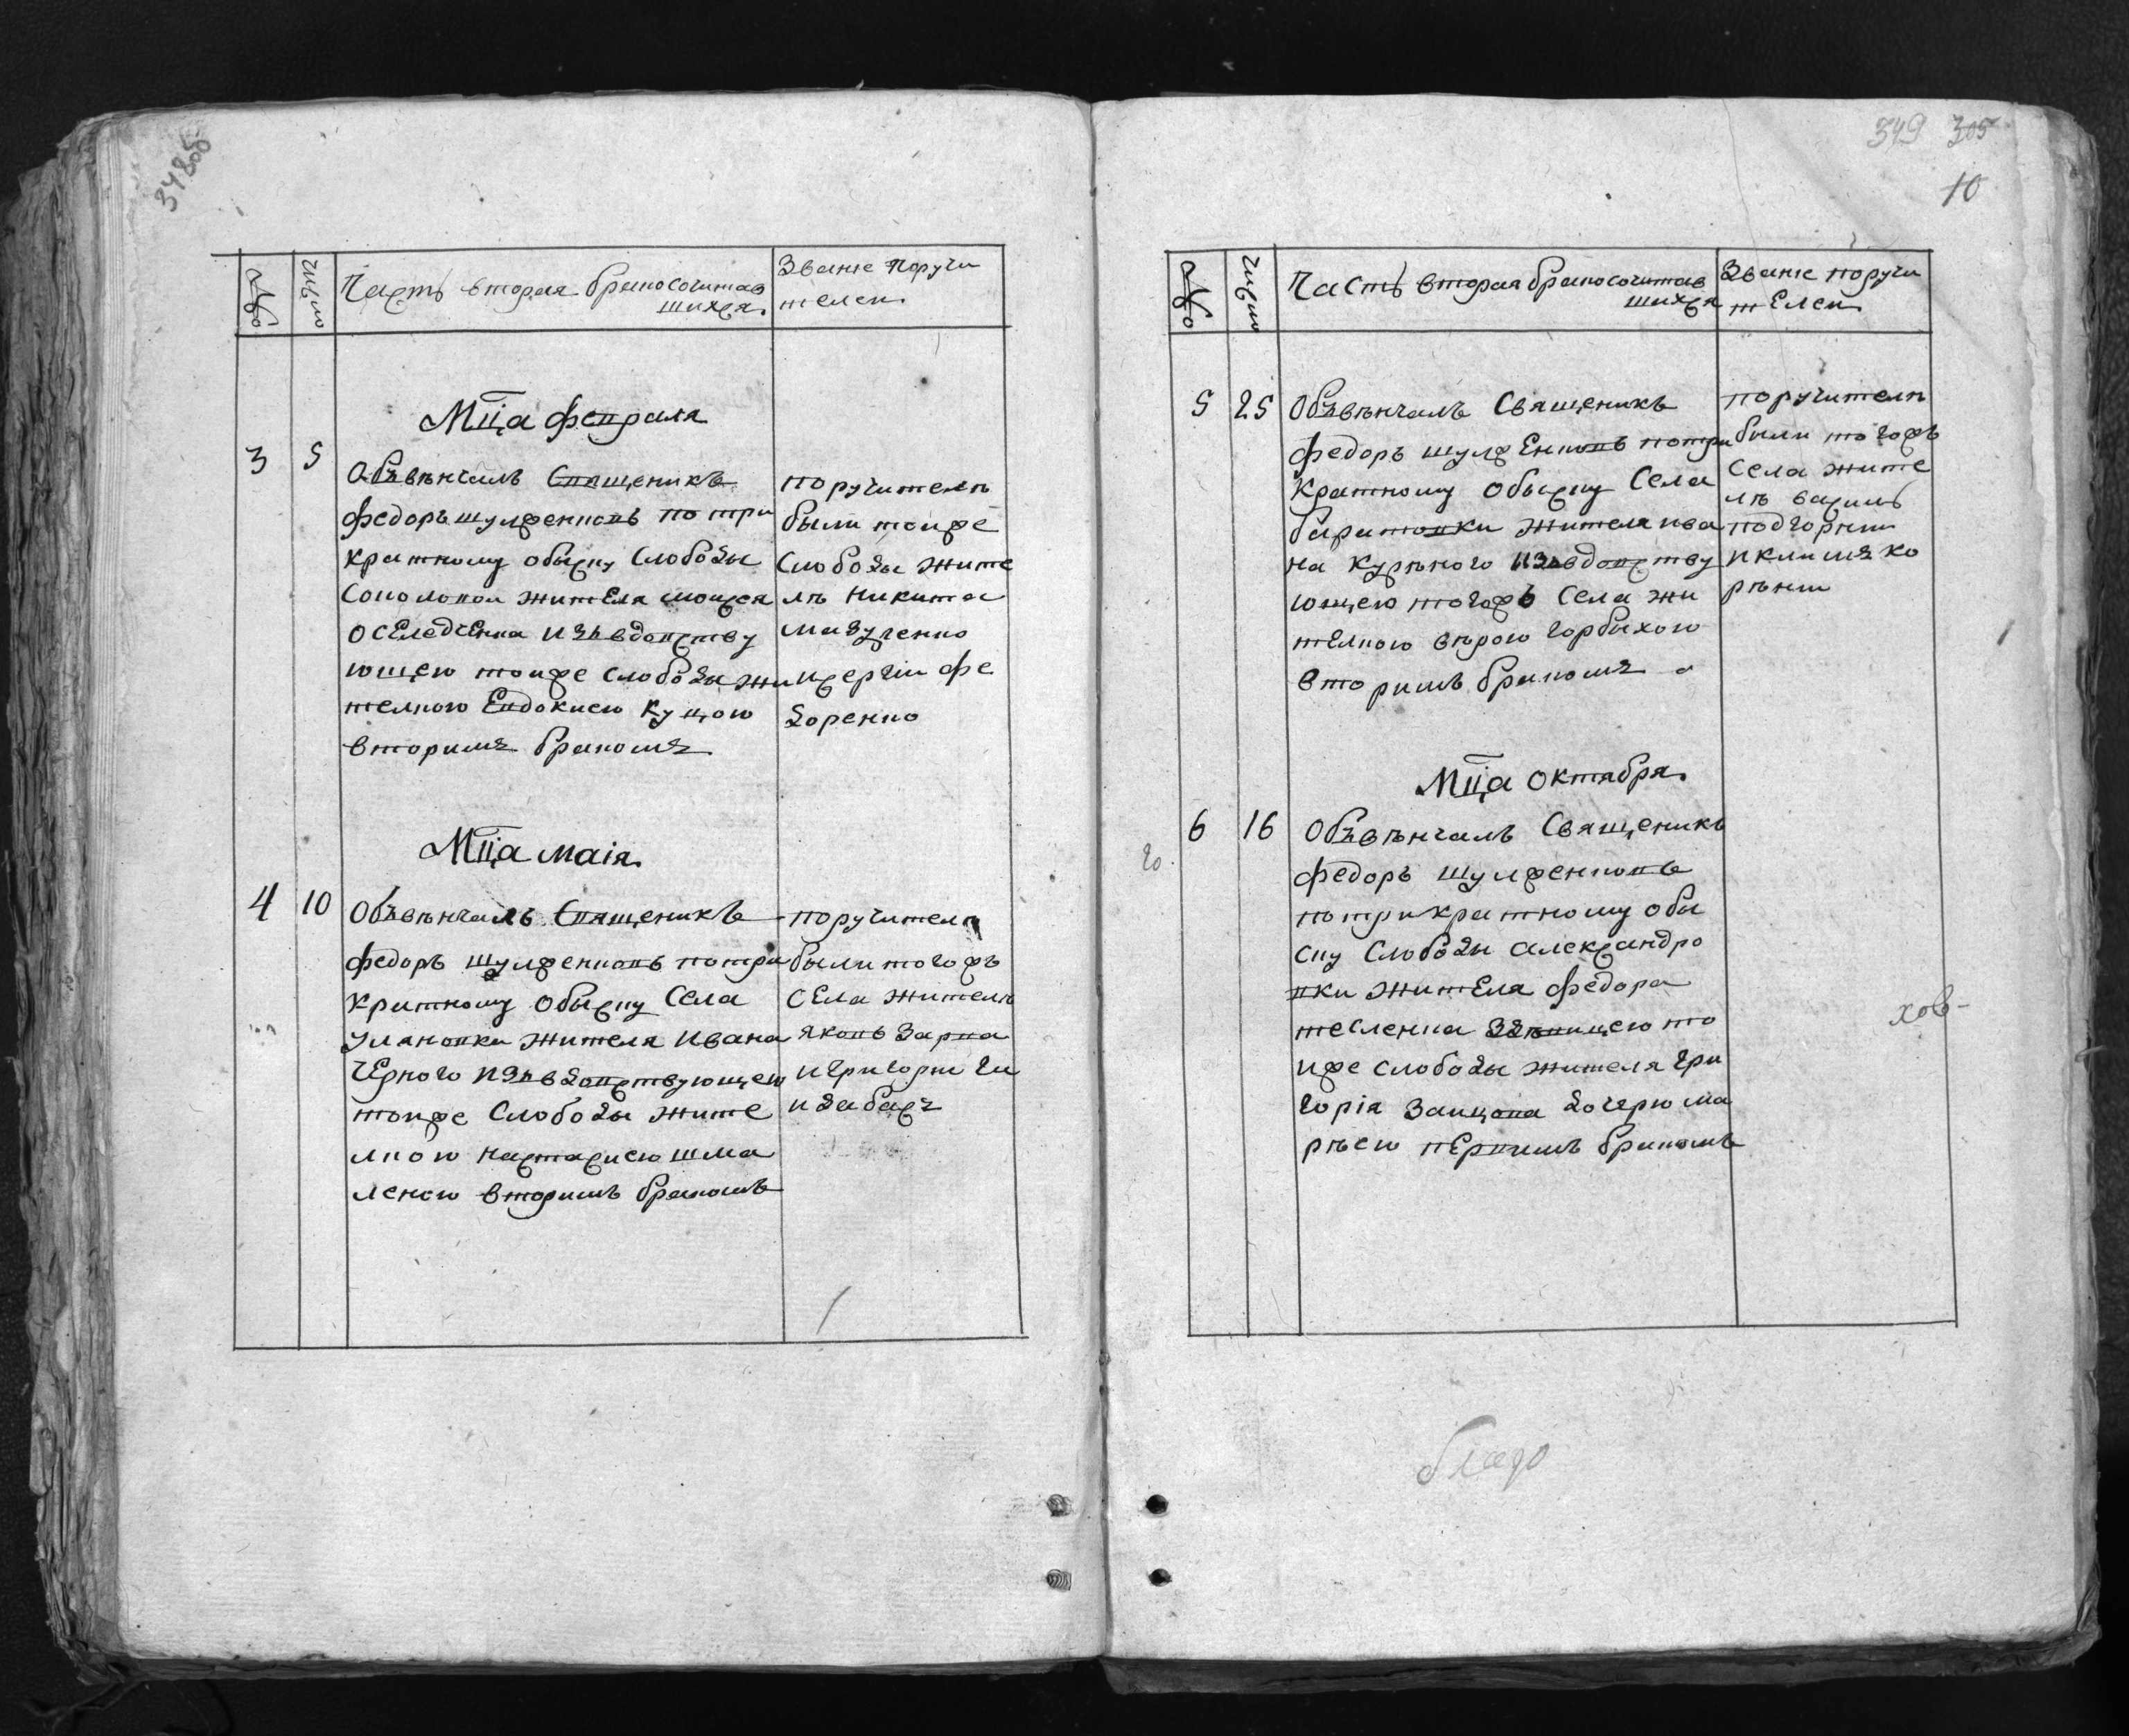 348
№
число
Часть вторая бракосочитав
шихся.
Звание поручи
телеи.
Мц̃а февраля
3 5
Обвѣнчалъ Священикъ
федоръ шулженковъ по три
кратному обыску Слободы
Соколовои жителя моисея
оселедченка изъвдовству
ющею тоиже слободы жи
телкою Евдокиею Куцою
вторимъ бракомъ
поручители
были тоиже
Слободы жите
лѣ никита
мазученко
исергии фе
доренко
Мц̃а маія.
4 10
Обвѣнчалъ Священикъ
федоръ шулженковъ потри
кратному обыску Села
улановки жителя ивана
Черного изъвдовствующею
тоиже Слободы жите
лкою настасиею шма
леною вторимъ бракомъ
поручители
были тогожъ
села жители
яковъ Зарва
игригории
349 305
10
№
число
Часть вторая бракосочитав
шихся
Звание поручи
телеи
5 25
Обвѣнчалъ Священикъ
федоръ шулженковъ потри
кратному обыску Села
баритовки жителя ива
на курѣного изъвдовству
ющею тогожъ Села жи
телкою вѣрою горбыхою
вторимъ бракомъ
поручители
были тогожъ
Села жите
лѣ василь
подгорни
иклимъ ко
рѣнни
Мц̃а октября.
6 16
Обвѣнчалъ Священикъ
федоръ шулженковъ
потрикратному обы
ску Слободы александро
вки жителя федора
тесленка здѣвицею то
иже слободы жителя гри
горія Заицова дочерю ма
рѣею первимъ бракомъ
го
хов-
благо